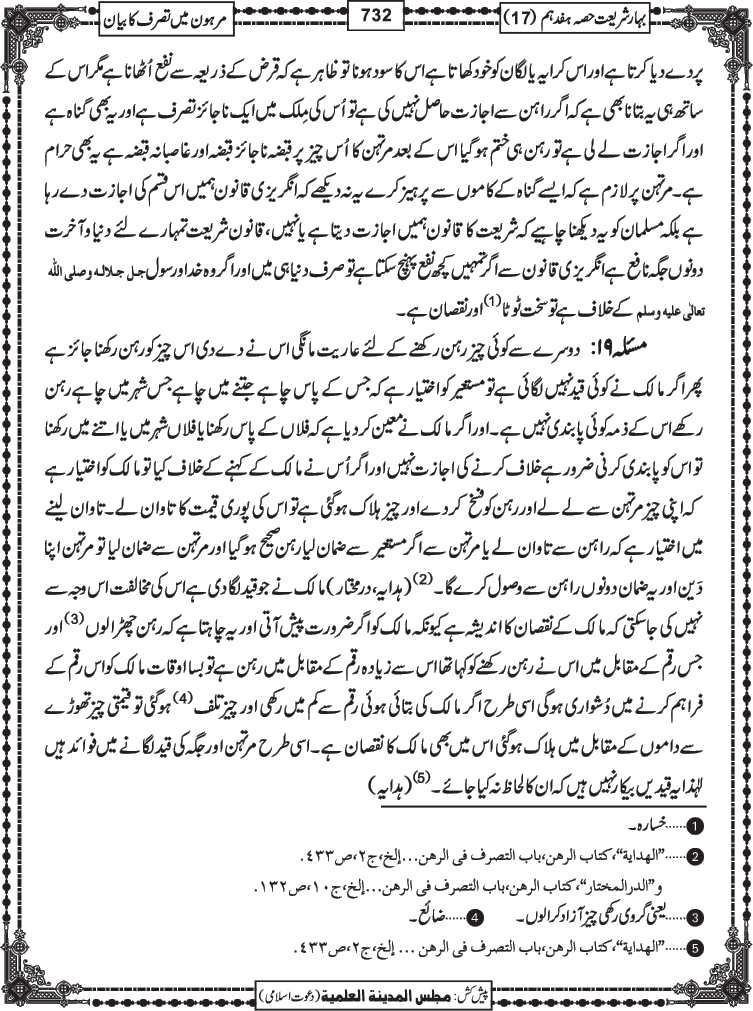 بہار شریعت حصہ ہفدہم (17)
732
مرہون میں تصرف کا بیان
پر دے دیا کرتا ہے اور اس کرایہ یا لگان کو خود کھاتا ہے اس کا سود ہونا تو ظاہر ہے کہ قرض کے ذریعہ سے نفع اُٹھانا ہے مگر اس کے
ساتھ ہی یہ بتانا بھی ہے کہ اگر راہن سے اجازت حاصل نہیں کی ہے تو اُس کی مِلک میں ایک ناجائز تصرف ہے اور یہ بھی گناہ ہے
اور اگر اجازت لے لی ہے تو رہن ہی ختم ہوگیا اس کے بعد مرتہن کا اُس چیز پر قبضہ ناجائز قبضہ اور غاصبانہ قبضہ ہے یہ بھی حرام
ہے۔ مرتہن پر لازم ہے کہ ایسے گناہ کے کاموں سے پرہیز کرے یہ نہ دیکھے کہ انگریزی قانون ہمیں اس قسم کی اجازت دے رہا
ہے بلکہ مسلمان کو یہ دیکھنا چاہیے کہ شریعت کا قانون ہمیں اجازت دیتا ہے یا نہیں، قانون شریعت تمہارے لئے دنیا و آخرت
دونوں جگہ نافع ہے انگریزی قانون سے اگر تمہیں کچھ نفع پہنچ سکتا ہے تو صرف دنیا ہی میں اور اگر وہ خدا و رسول جل جلالہ وصلی اللہ
تعالٰی علیہ وسلم کے خلاف ہے تو سخت ٹوٹا(1) اور نقصان ہے۔
مسئلہ ۱۹: دوسرے سے کوئی چیز رہن رکھنے کے لئے عاریت مانگی اس نے دے دی اس چیز کو رہن رکھنا جائز ہے
پھر اگر مالک نے کوئی قید نہیں لگائی ہے تو مستعیر کو اختیار ہے کہ جس کے پاس چاہے جتنے میں چاہے جس شہر میں چاہے رہن
رکھے اس کے ذمہ کوئی پابندی نہیں ہے۔ اور اگر مالک نے معین کر دیا ہے کہ فلاں کے پاس رکھنا یا فلاں شہر میں یا اتنے میں رکھنا
تو اس کو پابندی کرنی ضرور ہے خلاف کرنے کی اجازت نہیں اور اگر اُس نے مالک کے کہنے کے خلاف کیا تو مالک کو اختیار ہے
کہ اپنی چیز مرتہن سے لے لے اور رہن کو فسخ کردے اور چیز ہلاک ہوگئی ہے تو اس کی پوری قیمت کا تاوان لے۔ تاوان لینے
میں اختیار ہے کہ راہن سے تاوان لے یا مرتہن سے اگر مستعیر سے ضمان لیا رہن صحیح ہوگیا اور مرتہن سے ضمان لیا تو مرتہن اپنا
دَین اور یہ ضمان دونوں راہن سے وصول کرے گا۔(2) (ہدایہ، درمختار) مالک نے جو قید لگا دی ہے اس کی مخالفت اس وجہ سے
نہیں کی جاسکتی کہ مالک کے نقصان کا اندیشہ ہے کیونکہ مالک کو اگر ضرورت پیش آتی اور یہ چاہتا ہے کہ رہن چھڑالوں(3) اور
جس رقم کے مقابل میں اس نے رہن رکھنے کو کہا تھا اس سے زیادہ رقم کے مقابل میں رہن ہے تو بسا اوقات مالک کو اس رقم کے
فراہم کرنے میں دُشواری ہوگی اسی طرح اگر مالک کی بتائی ہوئی رقم سے کم میں رکھی اور چیز تلف(4) ہوگئی تو قیمتی چیز تھوڑے
سے داموں کے مقابل میں ہلاک ہوگئی اس میں بھی مالک کا نقصان ہے۔ اسی طرح مرتہن اور جگہ کی قید لگانے میں فوائد ہیں
لہٰذا یہ قیدیں بیکار نہیں ہیں کہ ان کا لحاظ نہ کیا جائے۔(5) (ہدایہ)
1......خسارہ۔
2......”الھدایة“، کتاب الرھن، باب التصرف فی الرھن...إلخ، ج۲، ص٤٣٣.
و”الدرالمختار“، کتاب الرھن، باب التصرف فی الرھن...إلخ، ج۱۰، ص۱۳۲.
3......یعنی گروی رکھی چیز آزاد کرالوں۔ 4......ضائع۔
5......”الھدایة“، کتاب الرھن، باب التصرف فی الرھن ... إلخ، ج۲، ص٤٣٣.
پیش کش: مجلس المدینة العلمیة (دعوت اسلامی)